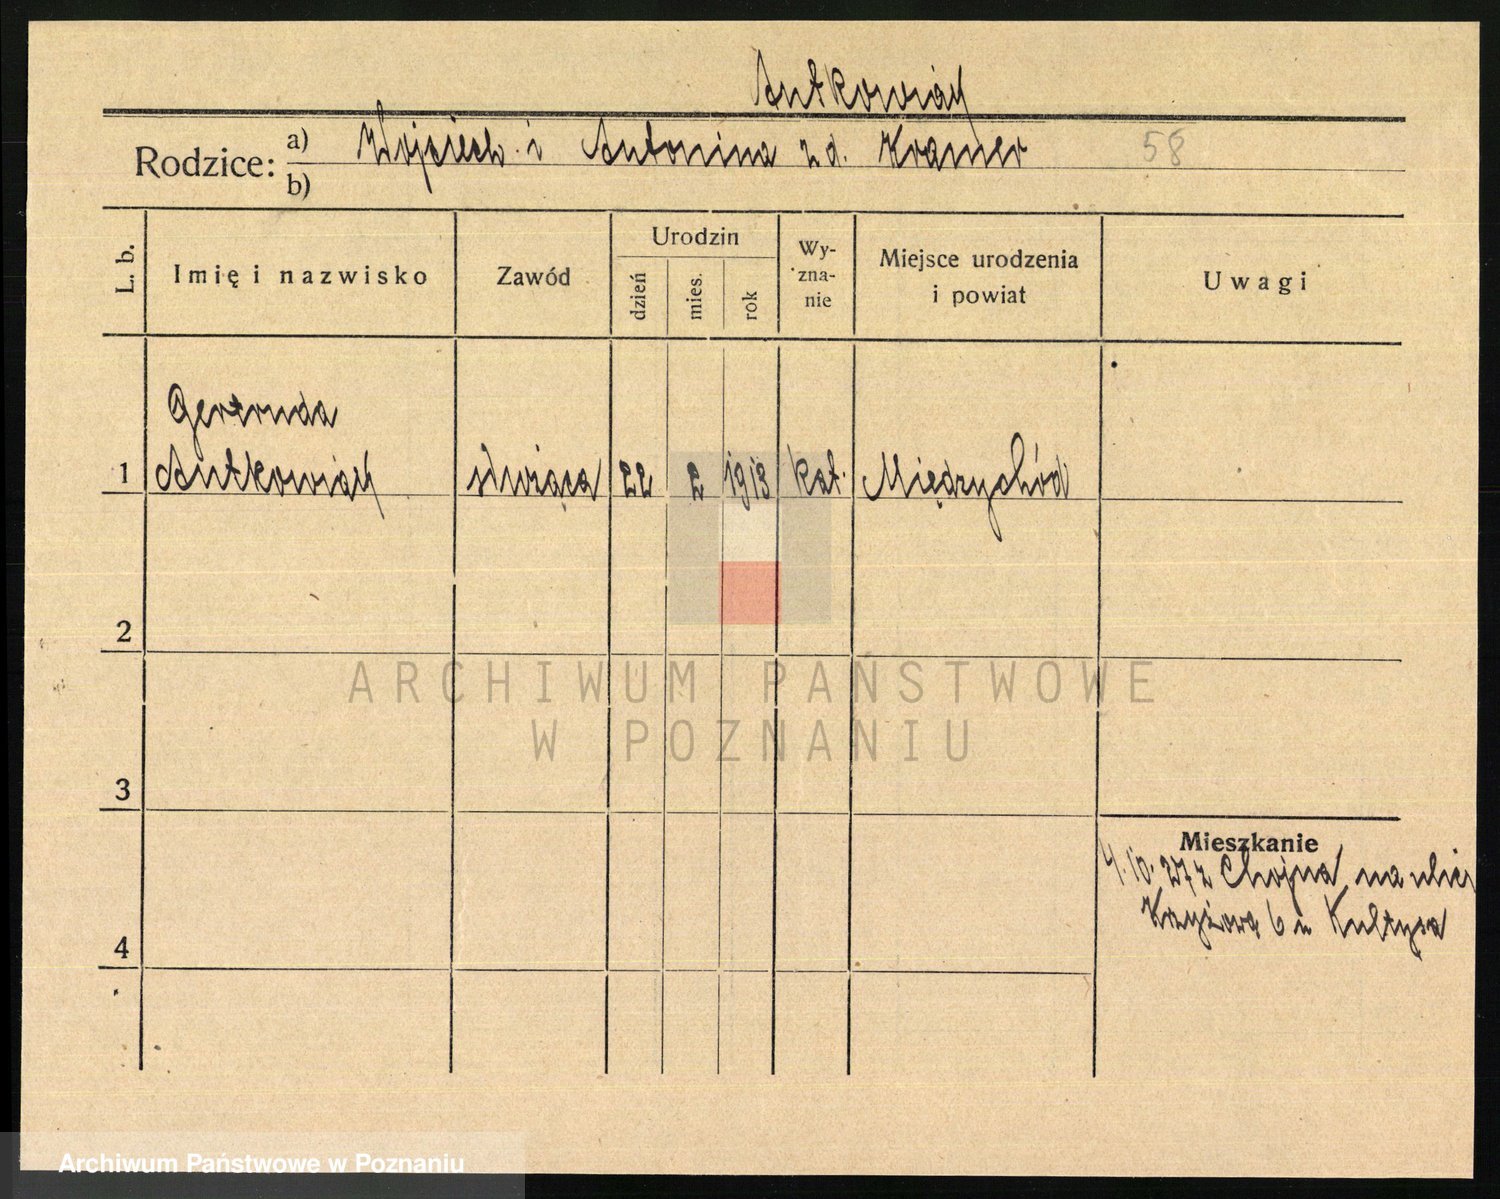 Antkowiak
Rodzice: a) Wojciech i Antonina z d. Kramer 58
b)
L. b.
Imię i nazwisko
Zawód
Urodzin
dzień
mies.
rok
Wy-
zna-
nie
Miejsce urodzenia
i powiat
Uwagi
Gertruda
1 Antkowiak służąca 22 2 1913 kat. Międzychód
2
3
4
Mieszkanie
4.10.27 z Chojna na ulicę
Krzyżową 6 u
ARCHIWUM PAŃSTWOWE
W POZNANIU
Archiwum Państwowe w Poznaniu